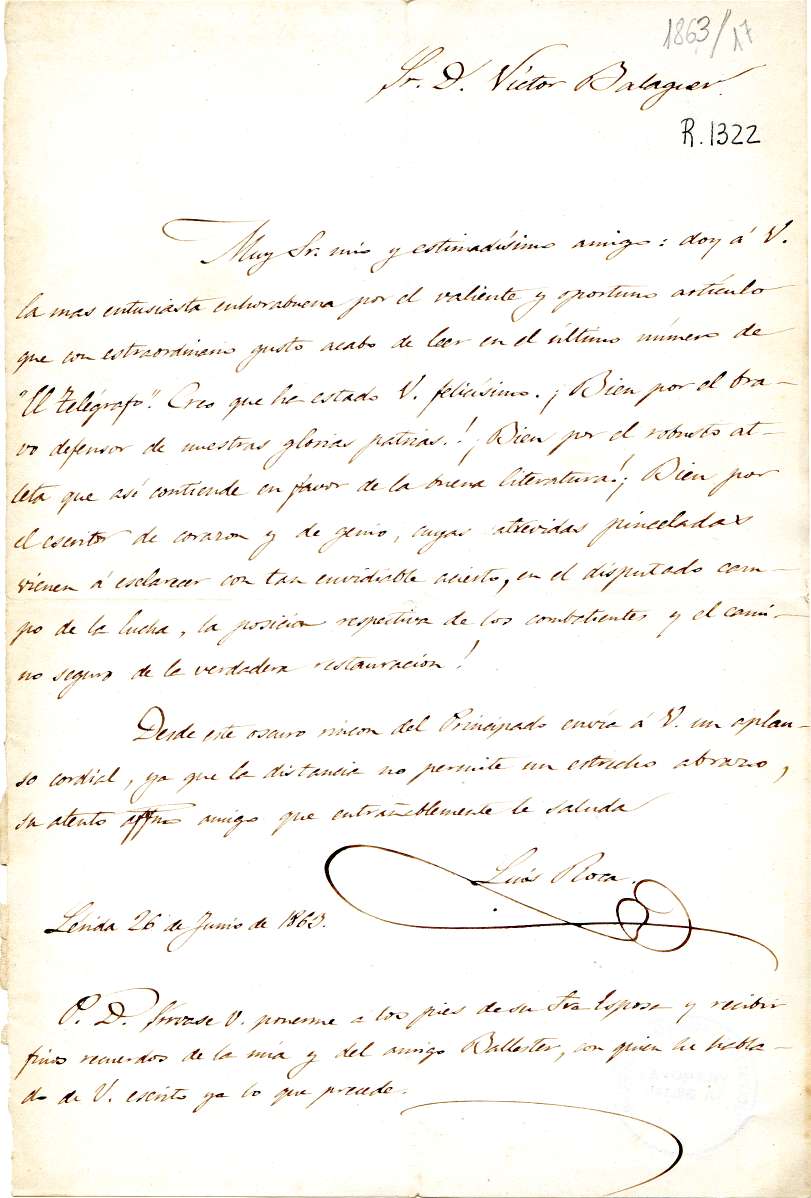 1863/17
Sr. D. Víctor Balaguer.
R. 1322
Muy Sr. mío y estimadísimo amigo: doy á V.
la mas entusiasta enhorabuena por el valiente y oportuno artículo
que con estraordinario gusto acabo de leer en el último número de
"El Telégrafo". Creo que ha estado V. felicísimo. ¡Bien por el bra-
vo defensor de nuestras glorias patrias! ¡Bien por el robusto at-
leta que así contiende en favor de la buena literatura! ¡Bien por
el escritor de corazon y de genio, cuyas atrevidas pinceladas
vienen á esclarecer con tan envidiable acierto, en el disputado cam-
po de la lucha, la posicion respectiva de los combatientes y el cami-
no seguro de la verdadera restauracion!
Desde este oscuro rincon del Principado envía á V. un aplau-
so cordial, ya que la distancia no permite un estrecho abrazo,
su atento affmo amigo que entrañablemente le saluda
Luis Roca.
Lérida 26 de Junio de 1863.
P. D. Sírvase V. ponerme a los pies de su Sra Esposa y recibir
finos recuerdos de la mía y del amigo Ballester, con quien he habla-
do de V. escrito ya lo que precede.